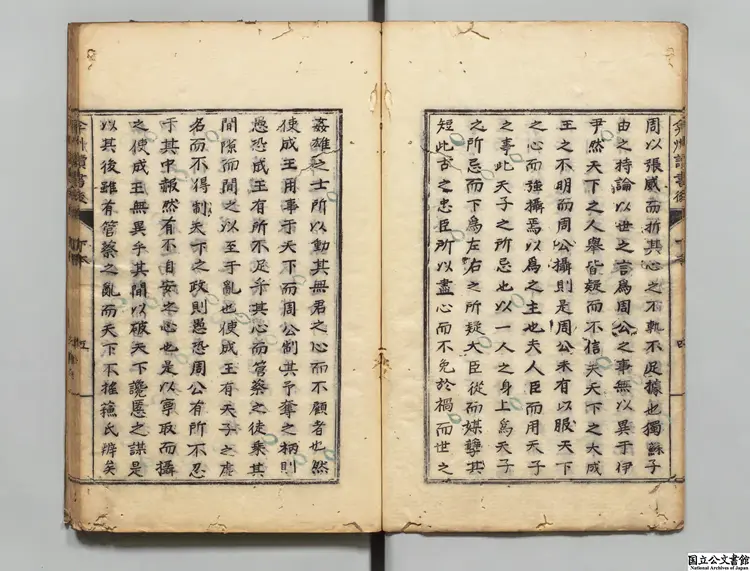 弇州讀書後
周以張威而折其心之不軌不足據也獨蘇子
由之持論以世之言爲周公之事無以異于伊
尹然天下之人舉皆疑而不信夫天下之大成
王之不明而周公攝則是周公未有以服天下
之心而強攝焉以爲之主也夫人臣而用天子
之事此天子之所忌也以一人之身上爲天子
之所忌而下爲左右之所疑大臣從而媒孽其
短此古之忠臣所以盡心而不免於禍而世之
姦雄之士所以動其無君之心而不顧者也然
使成王用事于天下而周公制其予奪之柄則
愚恐成王有所不足乎其心而管蔡之徒乘其
間隙而間之以至于亂也使成王有天子之虛
名而不得制天下之政則愚恐周公有所不忍
于其中赧然有不自安之心也是以寧取而攝
之使成王無異乎其間以破天下讒慝之謀是
以其後雖有管蔡之亂而天下不搖穌氏辨矣
国立公文書館
National Archives of Japan